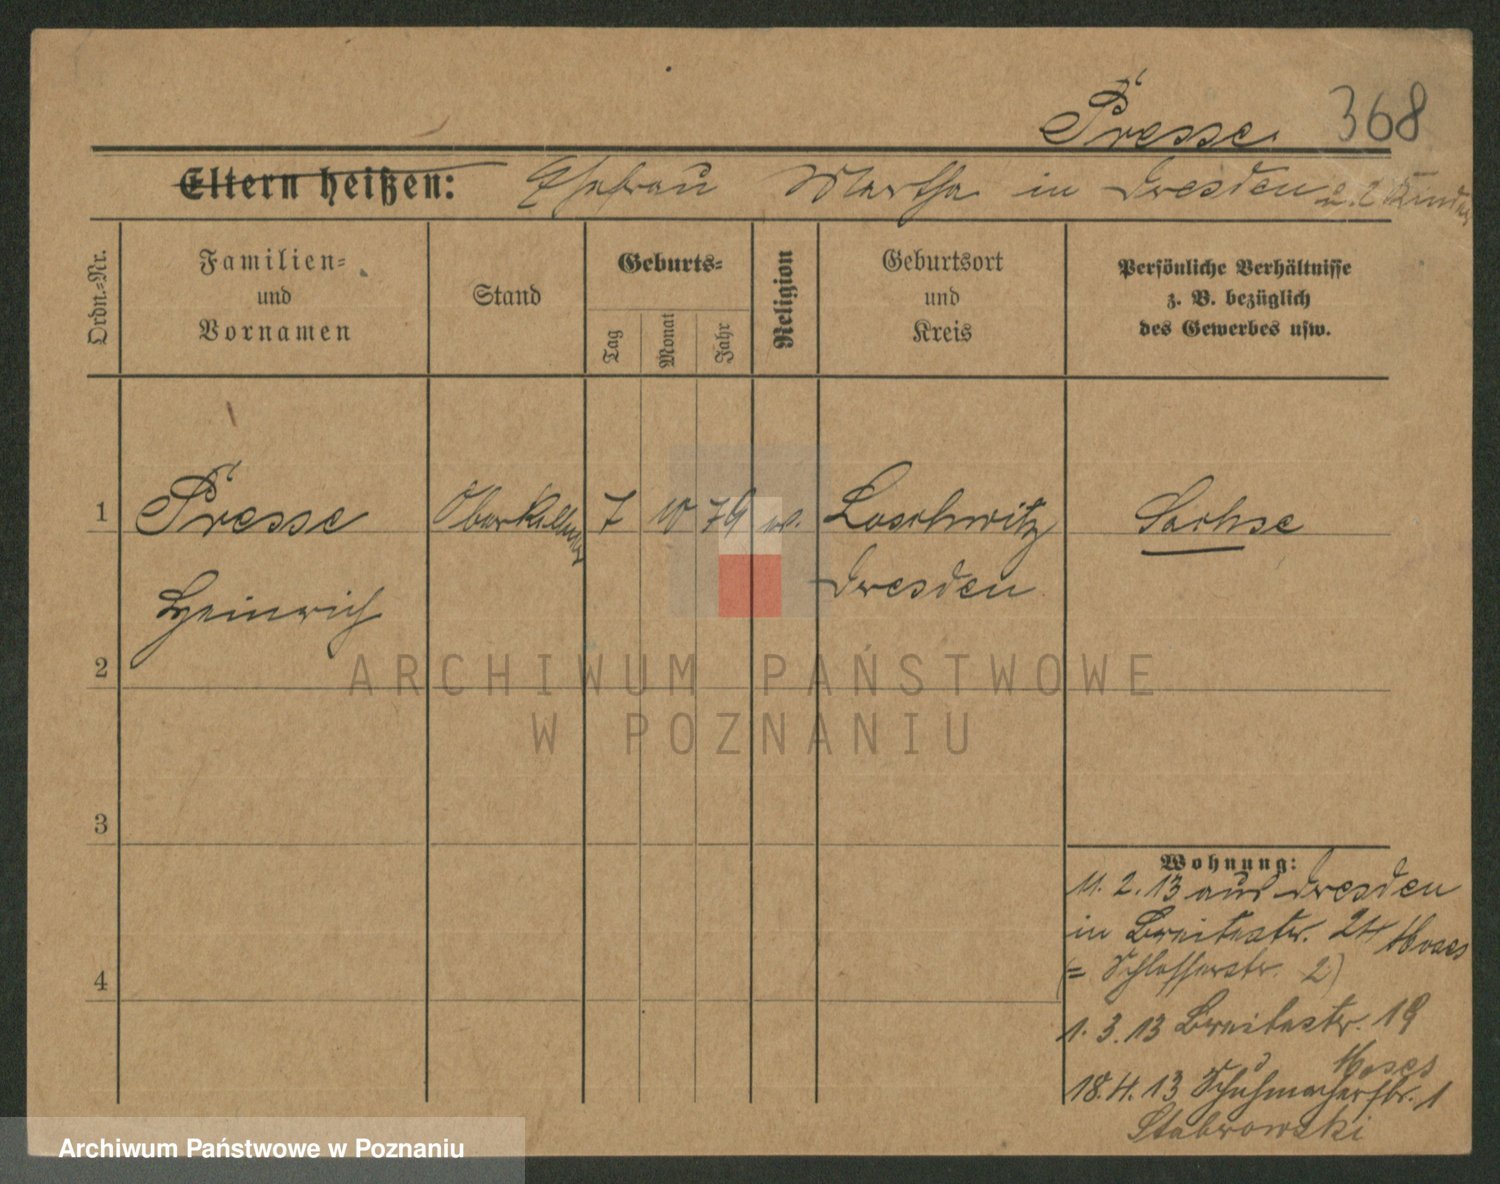 Presse 368
Eltern heißen: Ehefrau Martha in Dresden u. 2 Kinder
Ordn.-Nr.
Familien-
und
Vornamen
Stand
Geburts-
Tag
Monat
Jahr
Religion
Geburtsort
und
Kreis
Persönliche Verhältnisse
z. B. bezüglich
des Gewerbes usw.
1 Presse Oberkellner 7 10 79 ev. Loschwitz Sachse
Heinrich Dresden
2
ARCHIWUM PAŃSTWOWE
W POZNANIU
3
4
Wohnung:
11. 2. 13 aus Dresden
in Breitestr. 24 Moses
(= Schlosserstr. 2)
1. 3. 13 Breitestr. 19
Moses
18. 4. 13 Schuhmacherstr. 1
Stabrowski
Archiwum Państwowe w Poznaniu